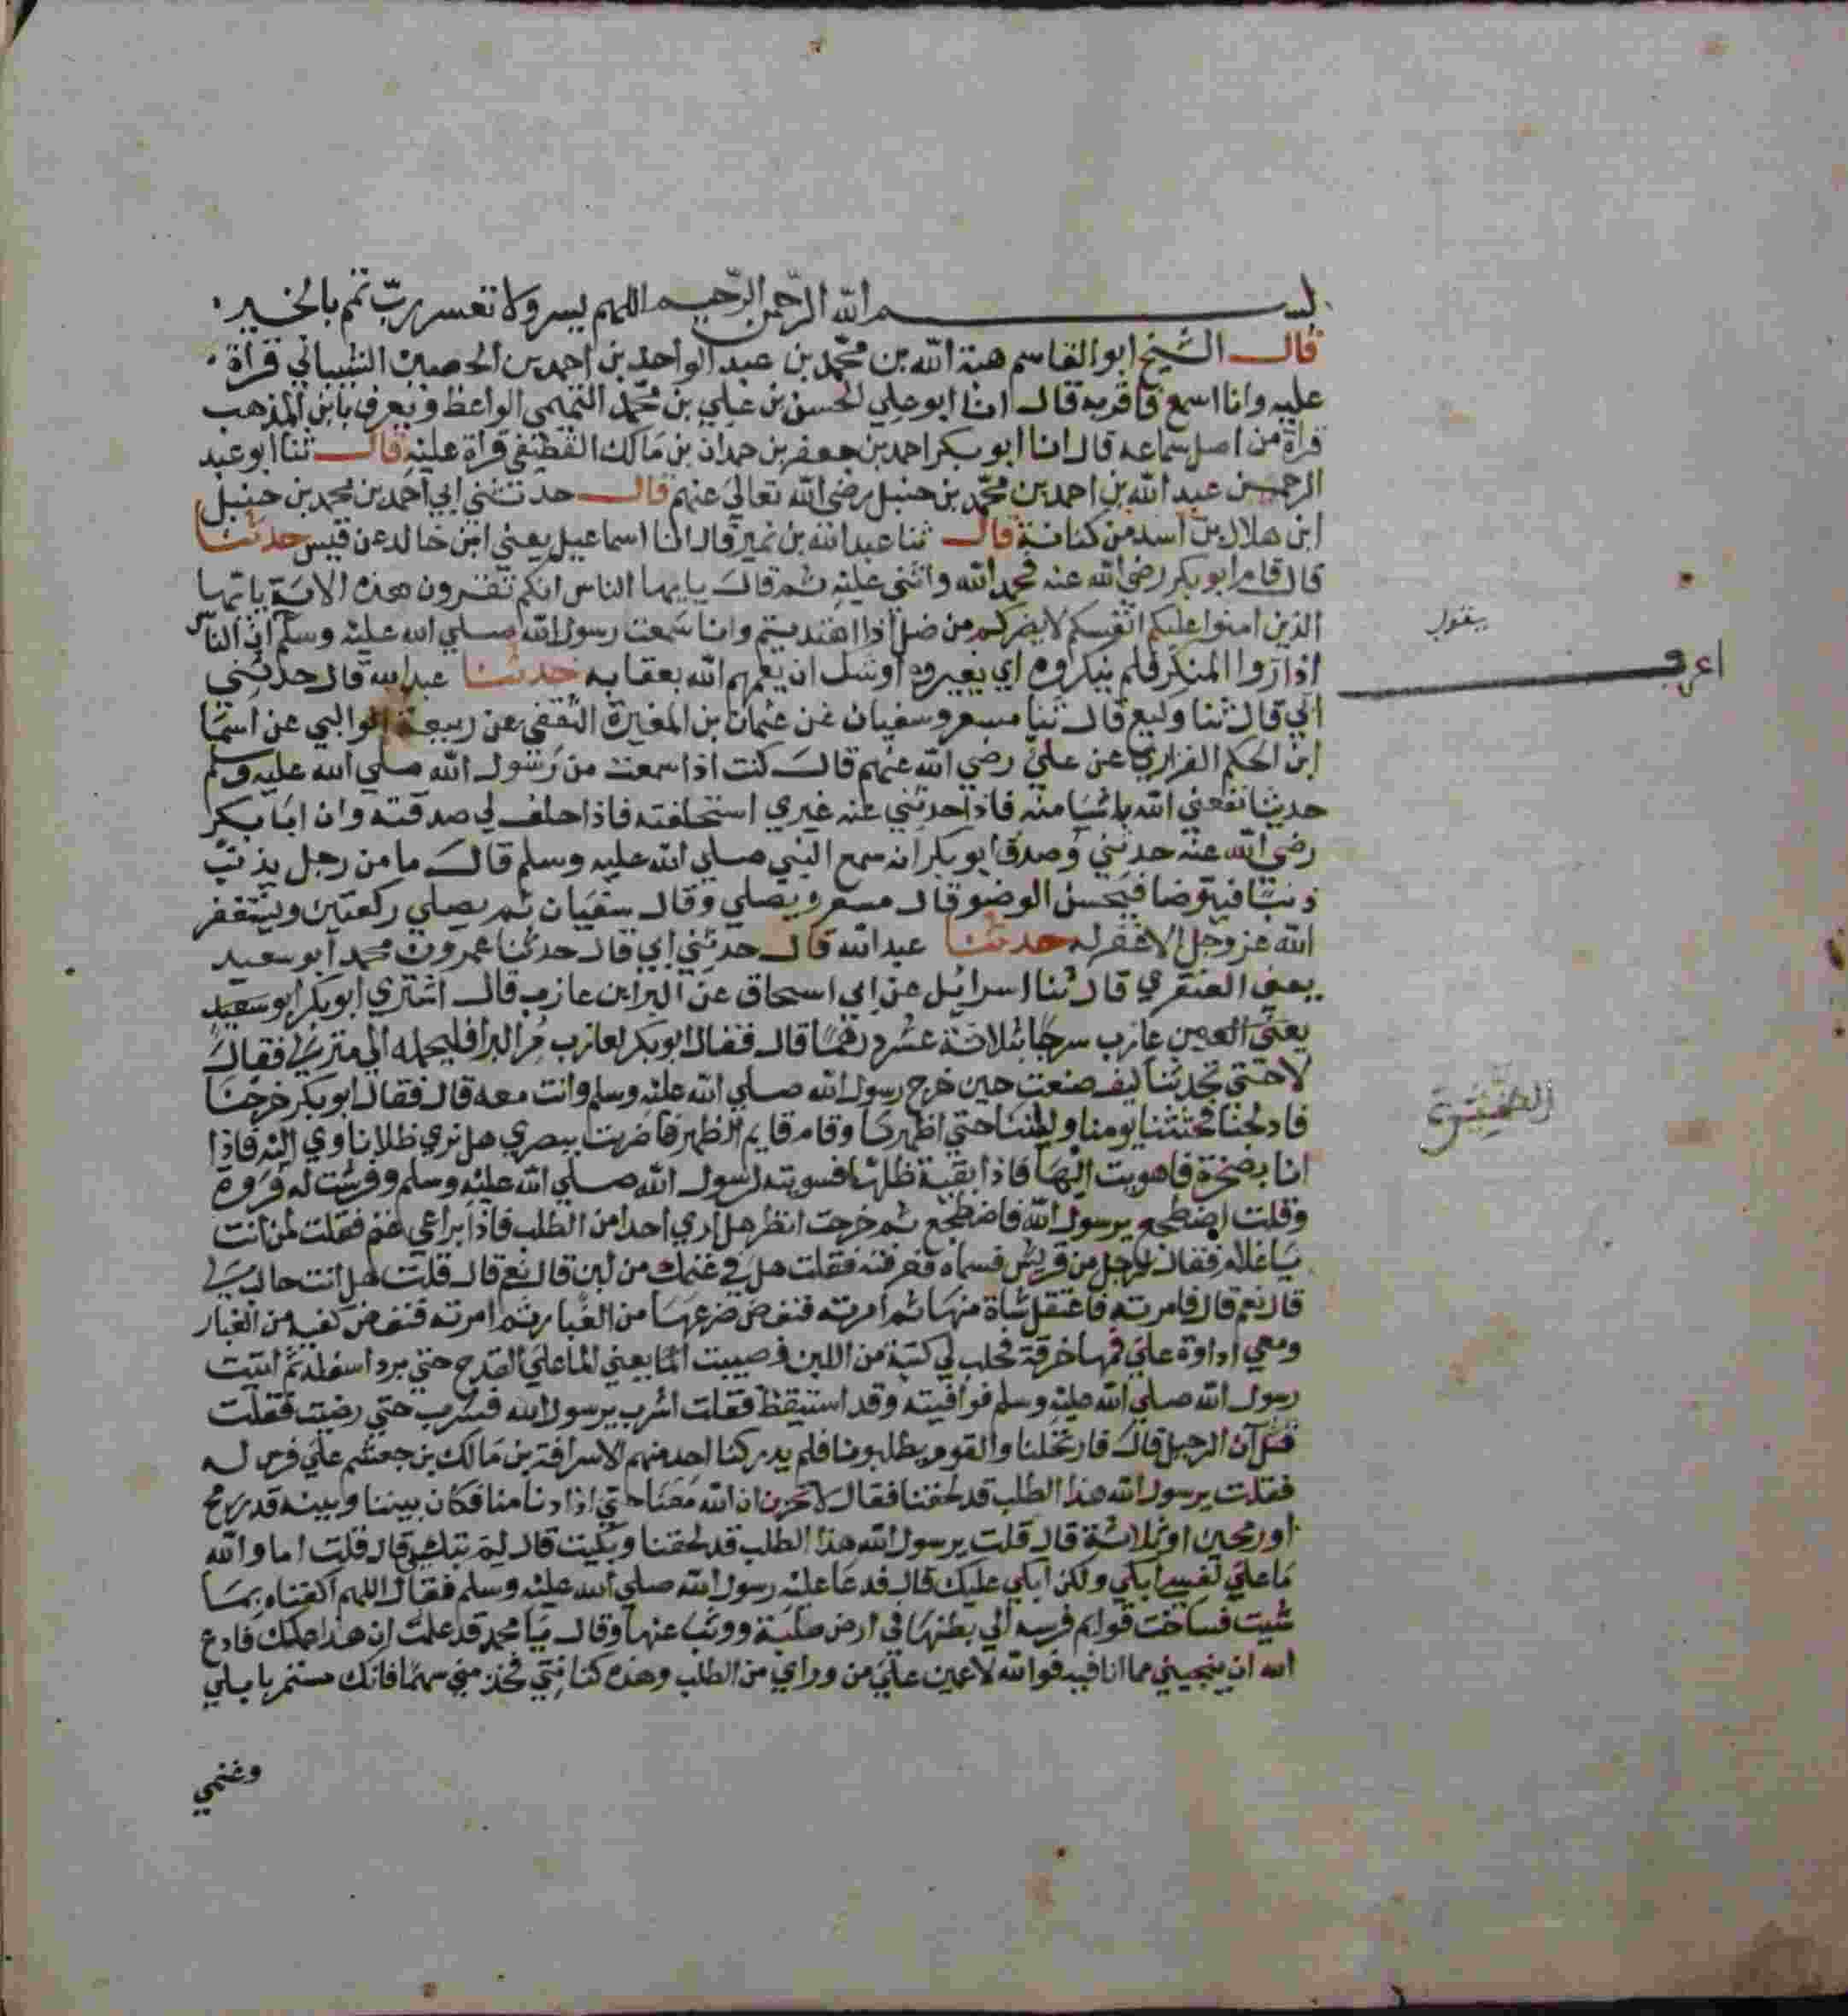 بسم الله الرحمن الرحيم اللهم يسر ولا تعسر رب تمم بالخير
قال الشيخ ابو القاسم هبة الله بن محمد بن عبد الواحد بن احمد بن الحصين الشيباني قرأة
عليه وانا اسمع فاقر به قال انا ابو علي الحسن بن علي بن محمد التميمي الواعظ ويعرف بابن المذهب
قراة من اصل سماعه قال انا ابو بكر احمد بن جعفر بن حمدان بن مالك القطيفي قراة عليه قال ثنا ابو عبد
الرحمن عبد الله بن احمد بن محمد بن حنبل رضي الله تعالى عنهم قال حدثني ابي احمد بن محمد بن حنبل
ابن هلال بن اسد من كتابه قال ثنا عبد الله بن نمير قال انا اسماعيل يعني ابن خالد عن قيس حدثنا
قال قام ابو بكر رضي الله عنه فحمد الله واثنى عليه ثم قال يا يها الناس انكم تقرون هذه الاية يا يها
الذين امنوا عليكم انفسكم لا يضركم من ضل اذا اهتديتم وانا سمعت رسول الله صلي الله عليه وسلم ان الناس
يقول
اذا روا المنكر فلم ينكروه اي يغيروه اوشك ان يعمهم الله بعقابه حدثنا عبد الله قال حدثني
ابي قال ثنا وكيع قال ثنا مسعر وسفيان عن عثمان بن المغيرة الثقفي عن ربيعة الوالبي عن اسما
ابن الحكم الفزاري عن علي رضي الله عنهم قال كنت اذا سمعت من رسول الله صلي الله عليه وسلم
حديثا نفعني الله بما شا منه فاذا حدثني عنه غيري استحلفته فاذا حلف لي صدقته وان ابا بكر
رضي الله عنه حدثني وصدق ابو بكر انه سمع النبي صلي الله عليه وسلم قال ما من رجل يذنب
ذنبا فيتوضا فيحسن الوضو قال مسعر ويصلي وقال سفيان ثم يصلي ركعتين ويستغفر
الله عز وجل الا غفر له حدثنا عبد الله قال حدثني ابي قال حدثنا عمرو بن محمد ابو سعيد
يعني العنقري قال ثنا اسرائل عن ابي اسحاق عن البرا بن عازب قال اشتري ابو بكر ابو سعيد
عازب سرجا بثلاثة عشر درهما قال فقال ابو بكر لعازب مر البرا فليحمله الي منزلي فقال
لا حتي تحدثنا كيف صنعت حين خرج رسول الله صلي الله عليه وسلم وانت معه قال فقال ابو بكر خرجنا
فادلجنا فحثثنا يومنا وليلتنا حتي اظهرنا وقام قايم الظهر فاضربت ببصري هل نري ظلا ناوي اليه فاذا
انا بصخرة فاهويت اليها فاذا بقية ظلها فسويته لرسول الله صلي الله عليه وسلم وفرشت له فروة
وقلت اضطجع يرسول الله فاضطجع ثم خرجت انظر هل اري احدا من الطلب فاذا براعي غنم فقلت لمن انت
يا غلام فقال لرجل من قريش فسماه فعرفته فقلت هل في غنمك من لبن قال نعم قال قلت هل انت حالب لي
قال نعم قال فامرته فاعتقل شاة منها ثم امرته فنفض ضرعها من الغبار ثم امرته فنفض كفيه من الغبار
ومعي اداوة علي فمها خرقة فحلب لي كثبة من اللبن فصببت الما يعني الما علي القدح حتي برد اسفله ثم اتيت
رسول الله صلي الله عليه وسلم فوافيته وقد استيقظ فقلت اشرب يرسول الله فشرب حتي رضيت فقلت
هل آن الرحيل قال فارتحلنا والقوم يطلبونا فلم يدركنا احد منهم الا سراقة بن مالك بن جعشم علي فرس له
فقلت يرسول الله هذا الطلب قد لحقنا فقال لا تحزن ان الله معنا حتي اذا دنا منا فكان بيننا وبينه قدر رمح
او رمحين او ثلاثة قال قلت يرسول الله هذا الطلب قد لحقنا وبكيت قال لم تبكي قال قلت اما والله
ما علي نفسي ابكي ولكن ابكي عليك قال فدعا عليه رسول الله صلي الله عليه وسلم فقال اللهم اكفناه بما
شيت فساخت قوايم فرسه الي بطنها في ارض صلبة ووثب عنها وقال يا محمد قد علمت ان هذا عملك فادع
الله ان ينجيني مما انا فيه فوالله لاعمين علي من وراي من الطلب وهذه كنانتي فخذ مني سهما فانك ستمر بابلي
وغنمي